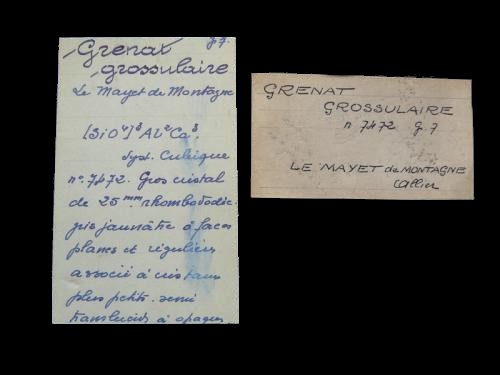 g.7.
Grenat
grossulaire
Le Mayet de Montagne
[SiO⁴]³Al²Ca³.
Syst. Cubique
n°.7472. Gros cristal
de 25ᵐᵐ rhombododéc.
gris jaunâtre à faces
planes et régulières
associé à cristaux
plus petits. semi
translucides à opaques
GRENAT
GROSSULAIRE
n° 7472 G.7
LE MAYET de MONTAGNE
Allier